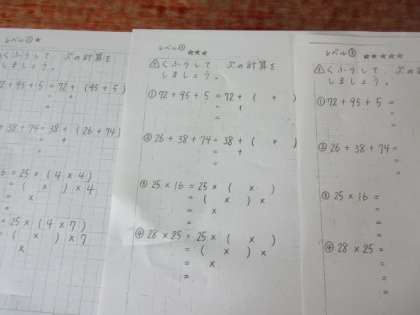 レベル① ★
くふうして 次の計算を
しましょう。
72+95+5=72+(95+5)
= +
=
+38+74=38+(26+74)
= +
=
16=25×(4×4)
=( × )×4
= ×
=
=25×(4×7)
=( × )×7
×
レベル② ★★★
△くふうして 次の計算を
しましょう。
①72+95+5=72+( + )
= +
=
②26+38+74=38+( + )
= +
=
③25×16=25×( × )
=( × )×
= ×
=
④28×25=25×( × )
=( × )×
= ×
=
レベル③ ★★★★★
△くふうして 次の計算
しましょう。
①72+95+5=
=
=
②26+38+74=
=
=
③25×16=
=
=
=
④28×25=
=
=
=